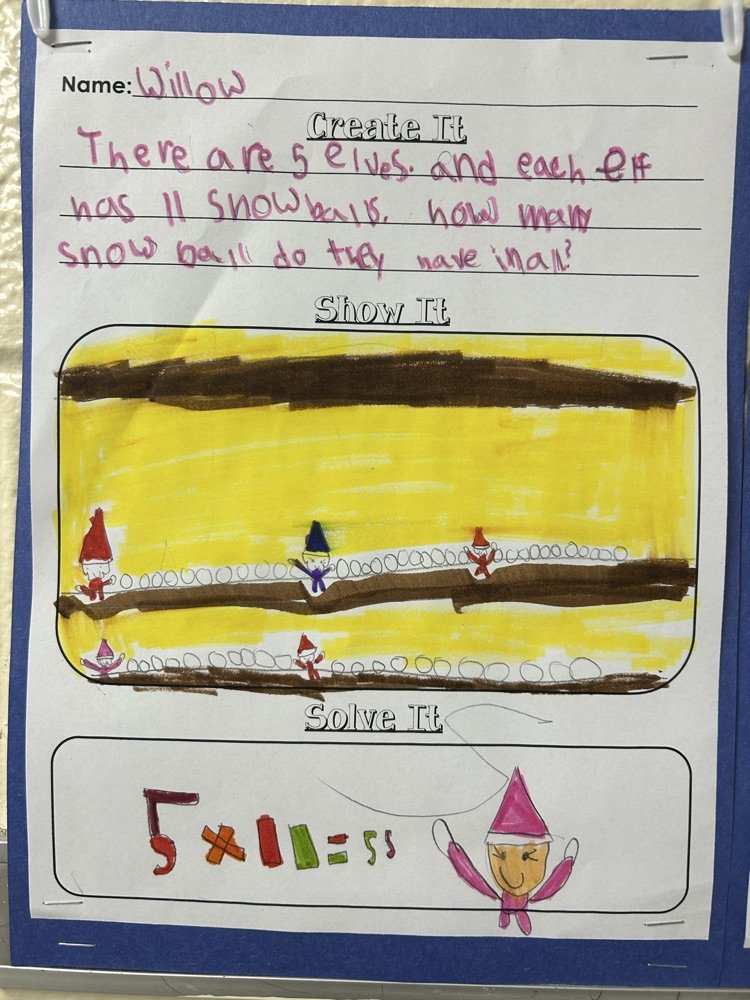 Name: Willow
Create It
There are 5 elves. and each elf
has 11 snowballs. how many
snow ball do they have inall?
Show It
Solve It
5 x 11 = 55